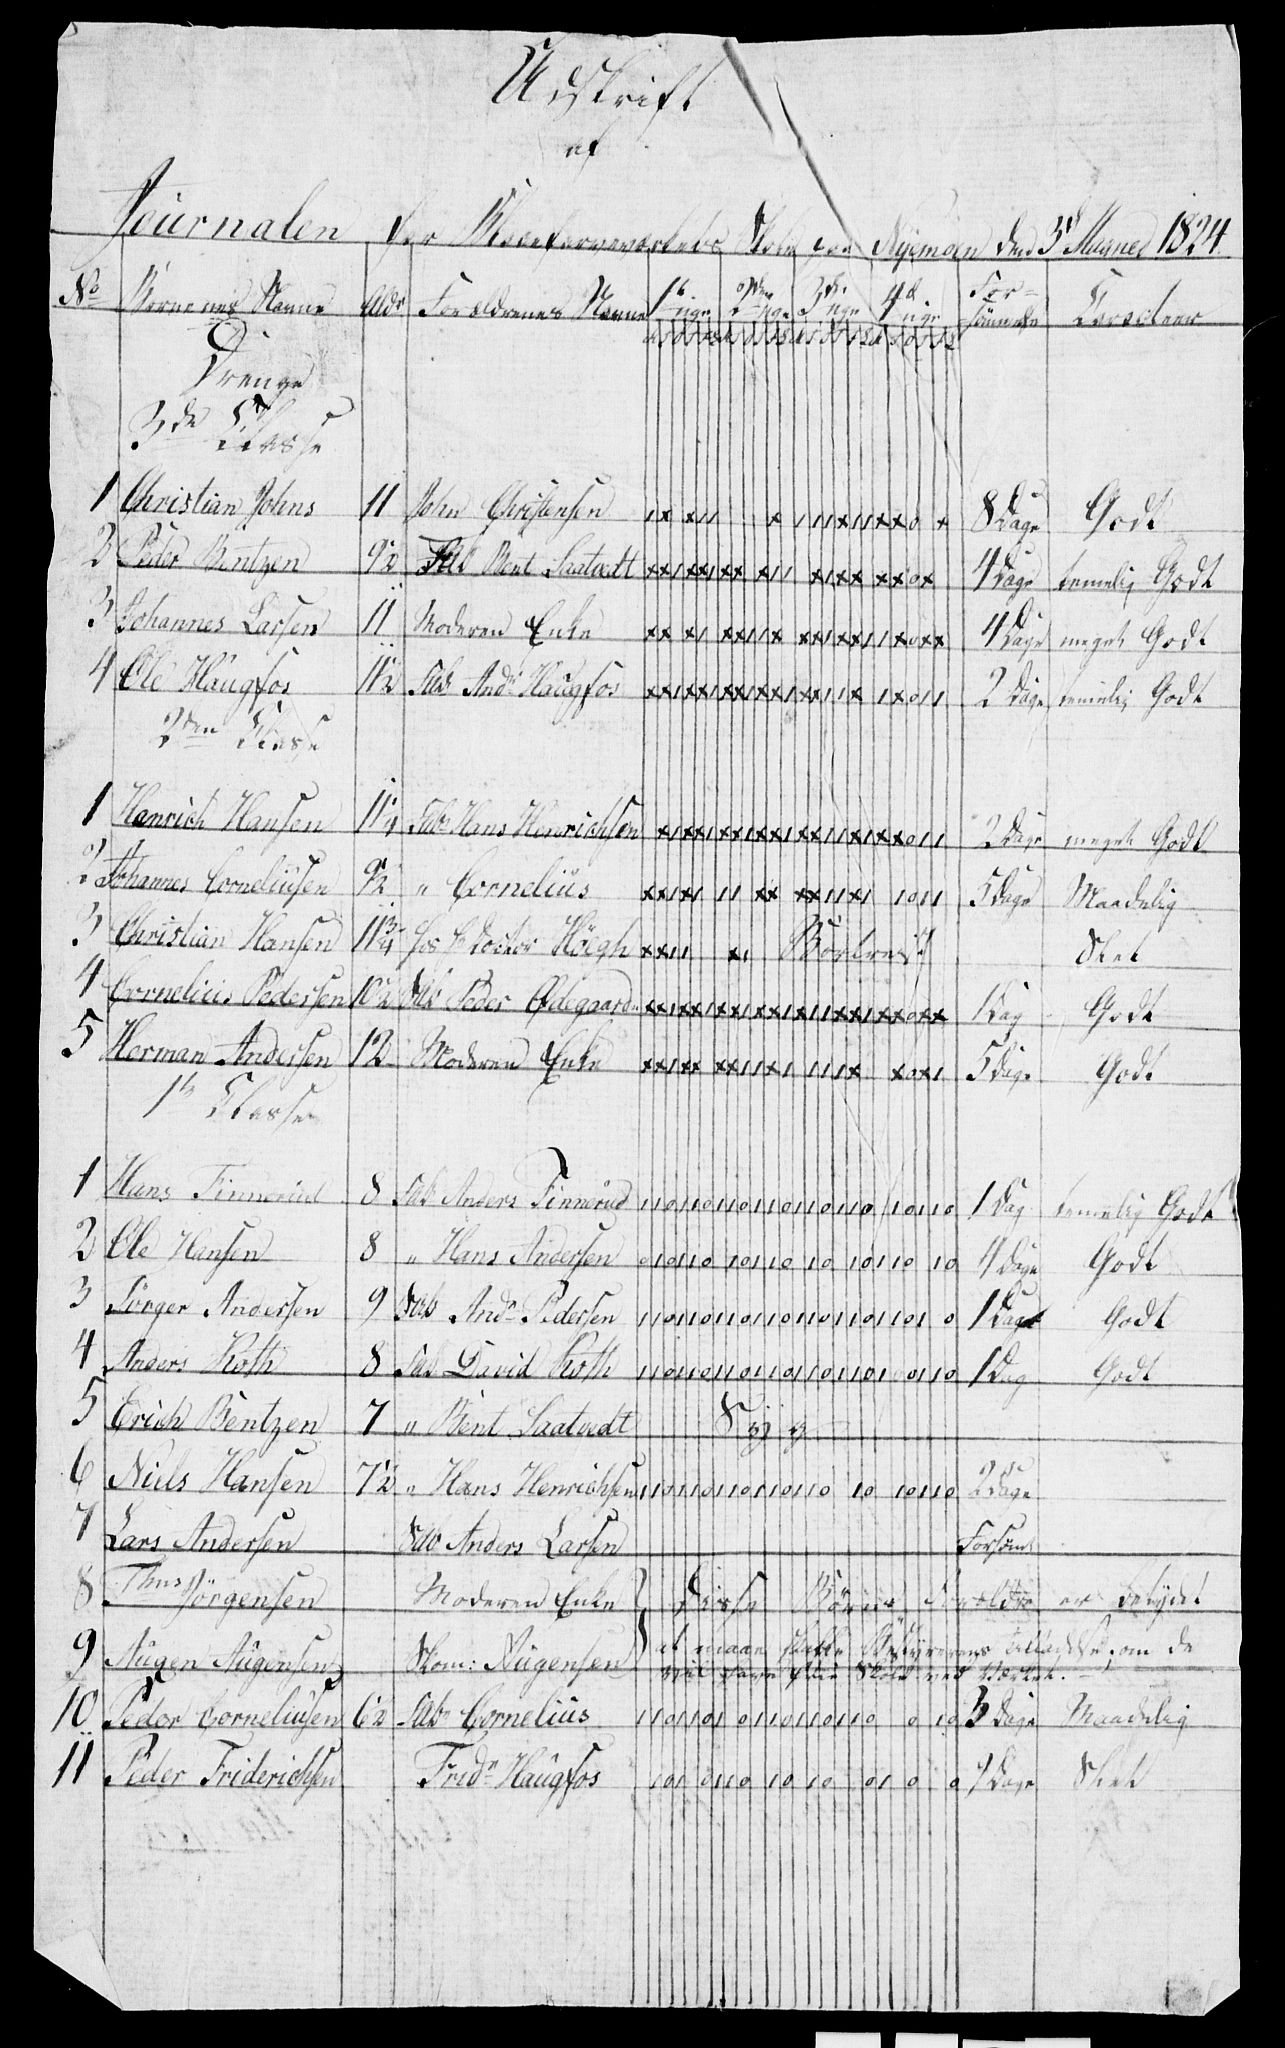 Udskrift
af
Journalen for Blaafarveværkets Skole paa Nyemoen den 3d Maaned 1824.
No Børnenes Navne Aldr Forældrenes Navne 1te Uge 2den Uge 3die Uge 4de Uge Forsømmelse Caracteer
Drenge
3die Classe
1 Christian Johns 11 John Christensen 8 Dage Godt
2 Peder Bentzen 9½ Fab Bent Saatvedt 4 Dage temelig Godt
3 Johannes Larsen 11 Moderen Enke 4 Dage meget Godt
4 Ole Haugfos 11½ Fab Andrs Haugfos 2 Dage temelig Godt
2den Classe
1 Henrich Hansen 11¼ Fabr Hans Henrichsen 2 Dage meget Godt
2 Johannes Corneliusen 9½ " Cornelius 5 Dage Maadelig
3 Christian Hansen 11¾ hos Hr Doctor Høegh Bortreist Slet
4 Cornelius Pedersen 10½ Fab Peder Ødegaarden 1 Dag Godt
5 Herman Andersen 12 Moderen Enke 5 Dage Godt
1te Classe
1 Hans Finnerud 8 Fab Anders Finnerud 1 Dag temelig Godt
2 Ole Hansen 8 " Hans Andersen 4 Dage Godt
3 Jørger Andersen 9 Fab Andrs Pedersen 1 Dag Godt
4 Anders Koth 8 Fab David Koth 1 Dag Godt
5 Erich Bentzen 7 " Bent Saatvedt Syg
6 Niels Hansen 7½ " Hans Henrichsen 2 Dage
7 Lars Andersen Fab Anders Larsen Forsømt
8 Thms Jørgensen Moderen Enke } Disse Børns Forældre er betydet
9 Augen Augensen Skom: Augensen } at maae have Bestyrerens Tilladelse, om de
vil have frie Skole ved Værket.
10 Peder Corneliusen 6½ Fab Cornelius 3 Dage Maadelig
11 Peder Friderichsen Fridr Haugfos 7 Dage Slet